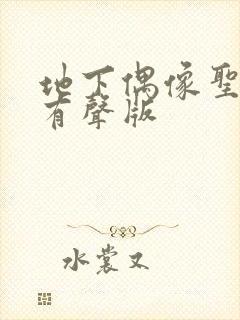 地下偶像聖
有聲版
水裳又